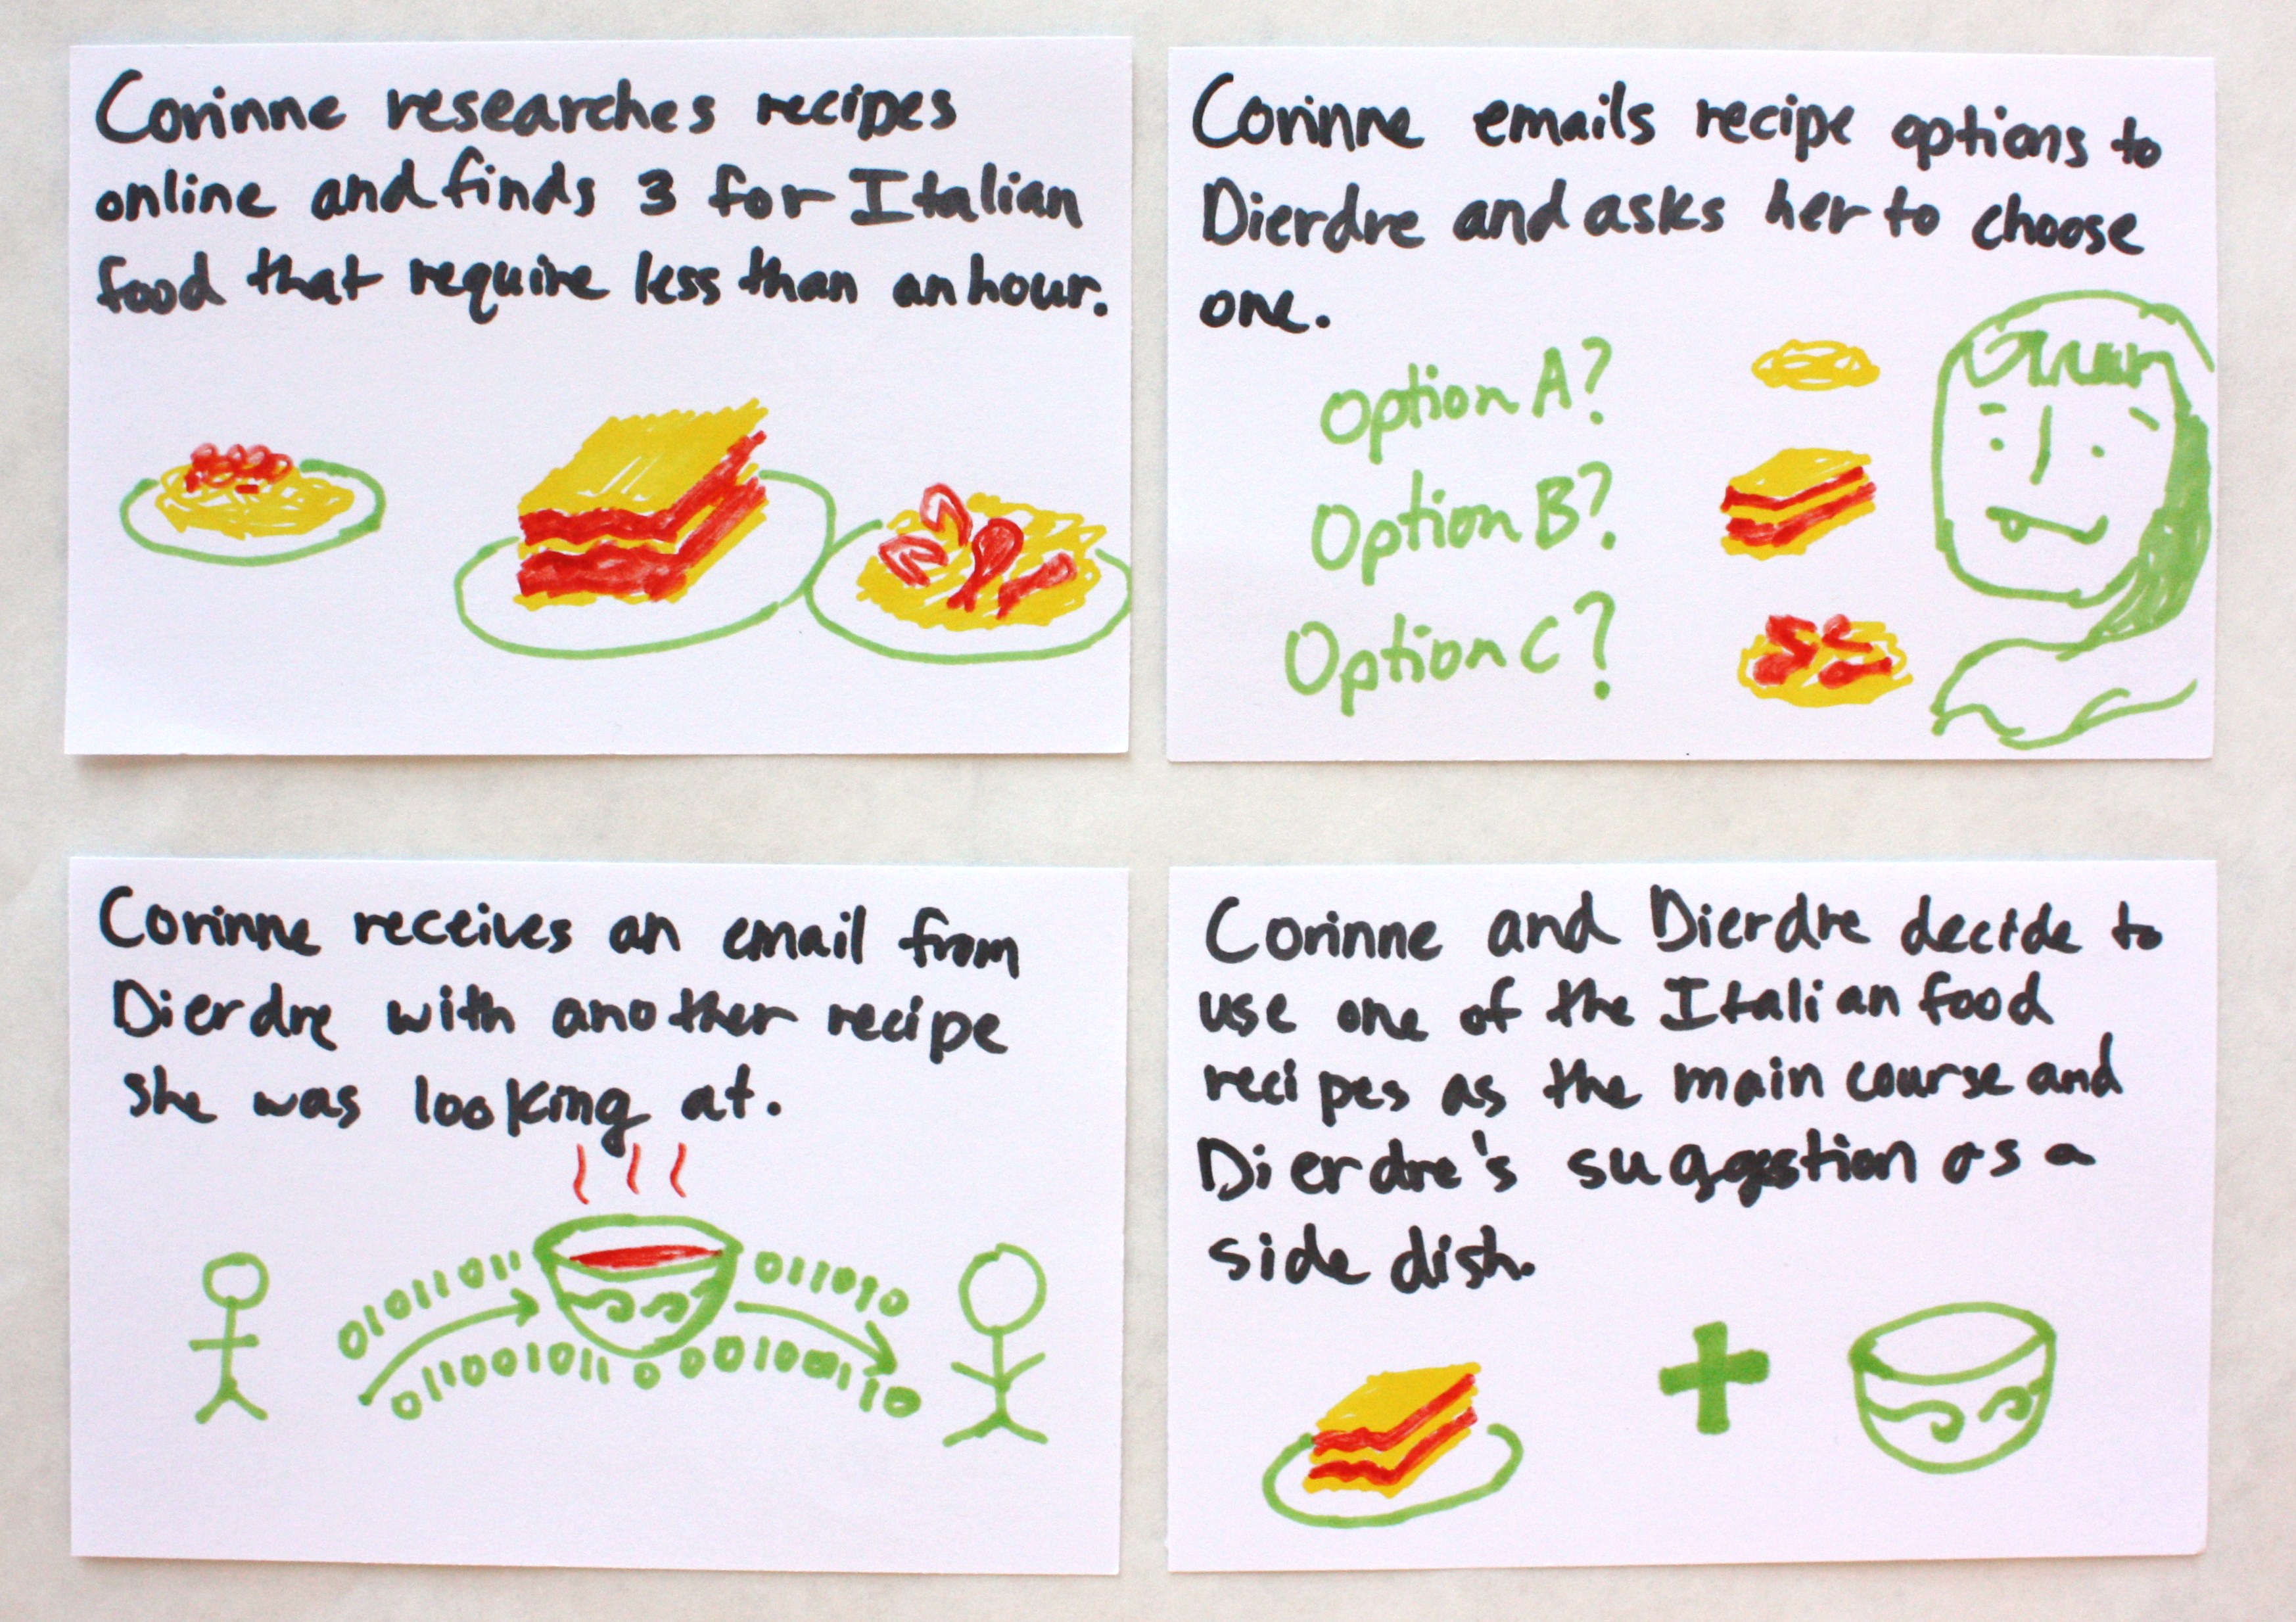 Corinne researches recipes
online and finds 3 for Italian
food that require less than an hour.
Corinne emails recipe options to
Dierdre and asks her to choose
one.
Option A?
Option B?
Option C?
Corinne receives an email from
Dierdre with another recipe
she was looking at.
01011011
011010
011001011 0 001001110
Corinne and Dierdre decide to
use one of the Italian food
recipes as the main course and
Dierdre's suggestion as a
side dish.